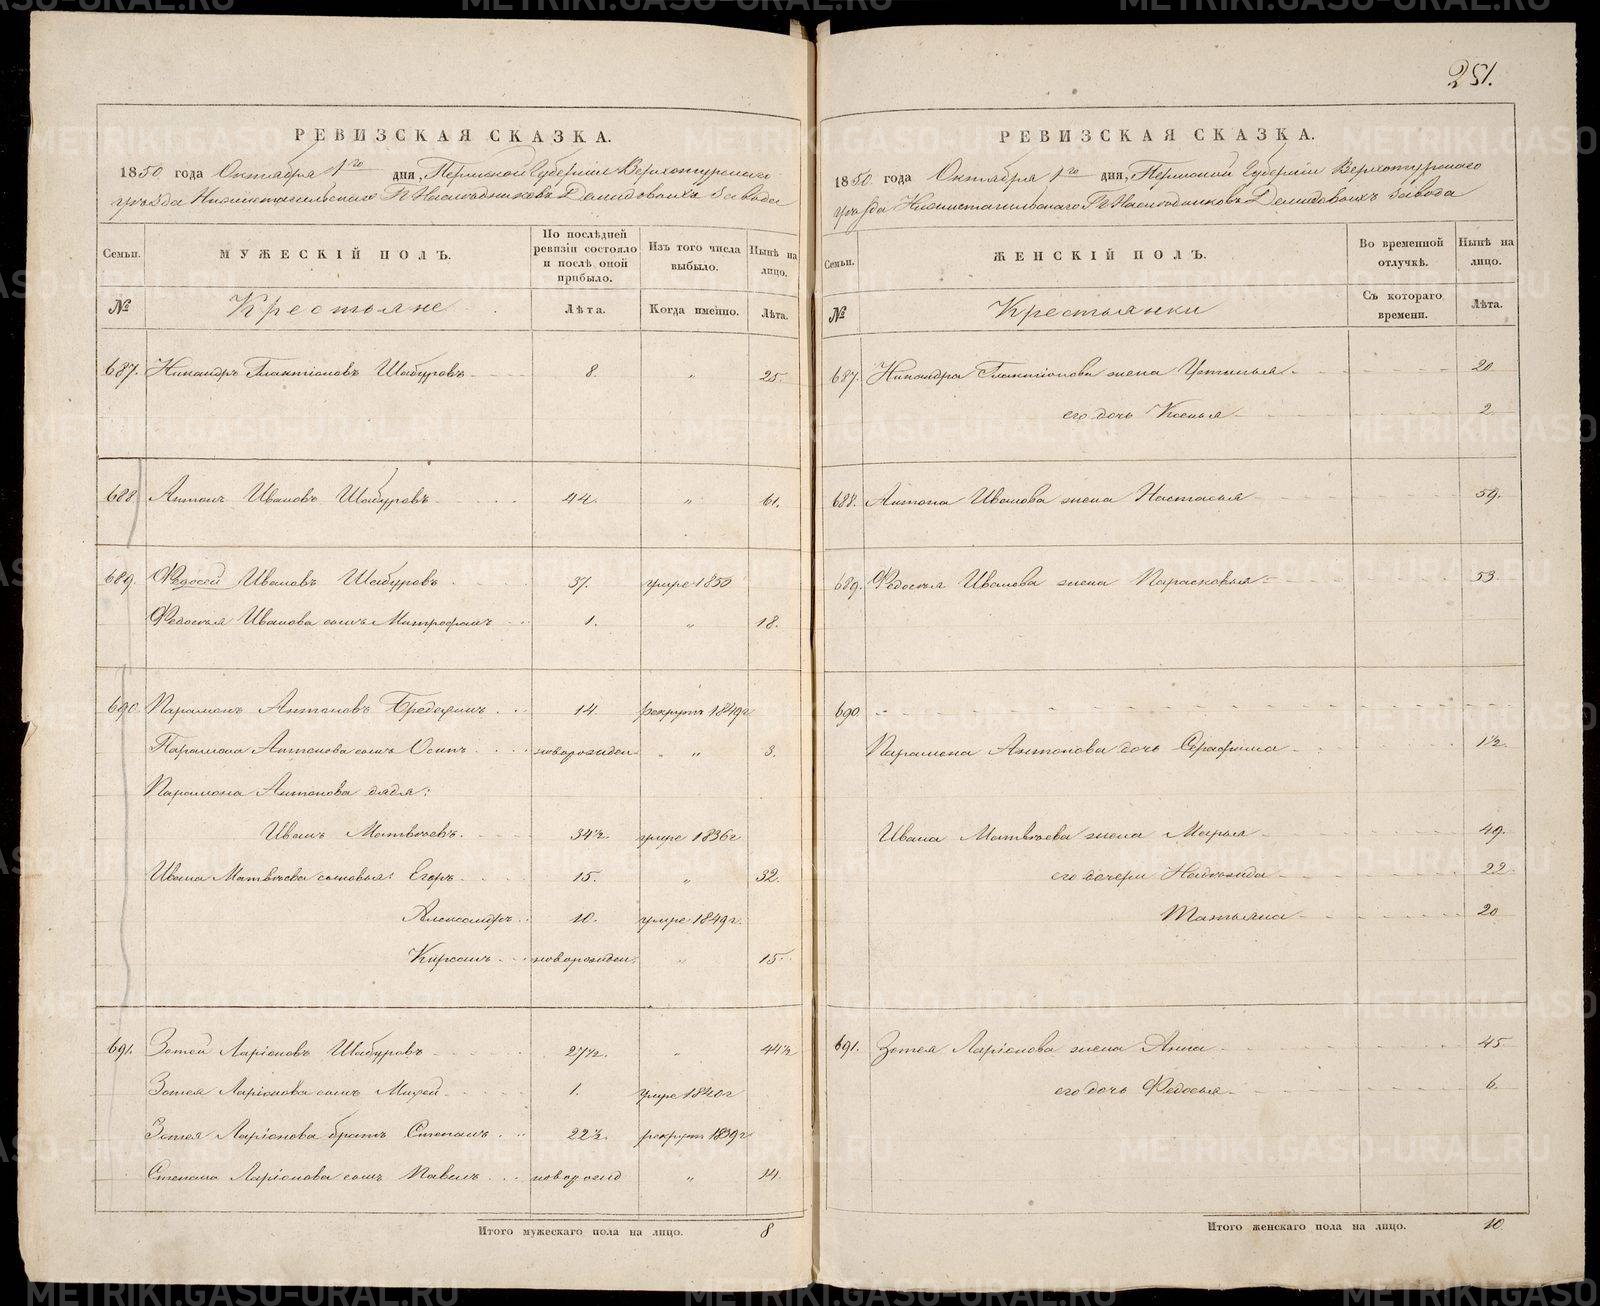 251.
РЕВИЗСКАЯ СКАЗКА.
1850 года Октября 1го дня, Пермской Губернии Верхотурского
уезда Нижнетагильского Гг. Наследниковъ Демидовыхъ Завода
Семьи. МУЖЕСКІЙ ПОЛЪ. По послѣдней ревизіи состояло и послѣ оной прибыло. Изъ того числа выбыло. Нынѣ на лицо.
№ Крестьяне Лѣта. Когда именно. Лѣта.
687. Никандръ Галактіоновъ Шабуровъ 8. " 25.
688. Антонъ Ивановъ Шабуровъ 44. " 61.
689. Федосей Ивановъ Шабуровъ 37. умре 1850
Федосѣя Иванова сынъ Митрофанъ 1. " 18.
690 Парамонъ Антоновъ 14. рекрутъ 1849г
Парамона Антонова сынъ Осипъ новорожден " 3.
Парамона Антонова дядя:
Иванъ Матвѣевъ 34½. умре 1836г
Ивана Матвѣева сыновья: Егоръ 15. " 32.
Александръ 10. умре 1849г.
Кирсанъ новорожден. " 15.
691. Зотей Ларіоновъ Шабуровъ 27½. " 44½
Зотея Ларіонова сынъ Михей 1. умре 1840г
Зотея Ларіонова братъ Степанъ 22½. рекрутъ 1839г
Степана Ларіонова сынъ Павелъ новорожд " 14.
Итого мужескаго пола на лицо. 8
РЕВИЗСКАЯ СКАЗКА.
1850 года Октября 1го дня, Пермской Губерніи Верхотурского
уезда Нижнетагильского Гг. Наследниковъ Демидовыхъ Завода
Семьи. ЖЕНСКІЙ ПОЛЪ. Во временной отлучкѣ. Нынѣ на лицо.
№ Крестьянки Съ котораго времени. Лѣта.
687. Никандра Галактіонова жена Устинья 20
его дочь Ксенья 2
688. Антона Иванова жена Настасья 59.
689. Федосѣя Иванова жена Парасковья 53.
690
Парамона Антонова дочь Серафима 1½
Ивана Матвѣева жена Марья 49.
его дочери Надежда 22
Татьяна 20
691. Зотея Ларіонова жена Анна 45
его дочь Федосья 6
Итого женскаго пола на лицо. 10
METRIKI.GASO-URAL.RU